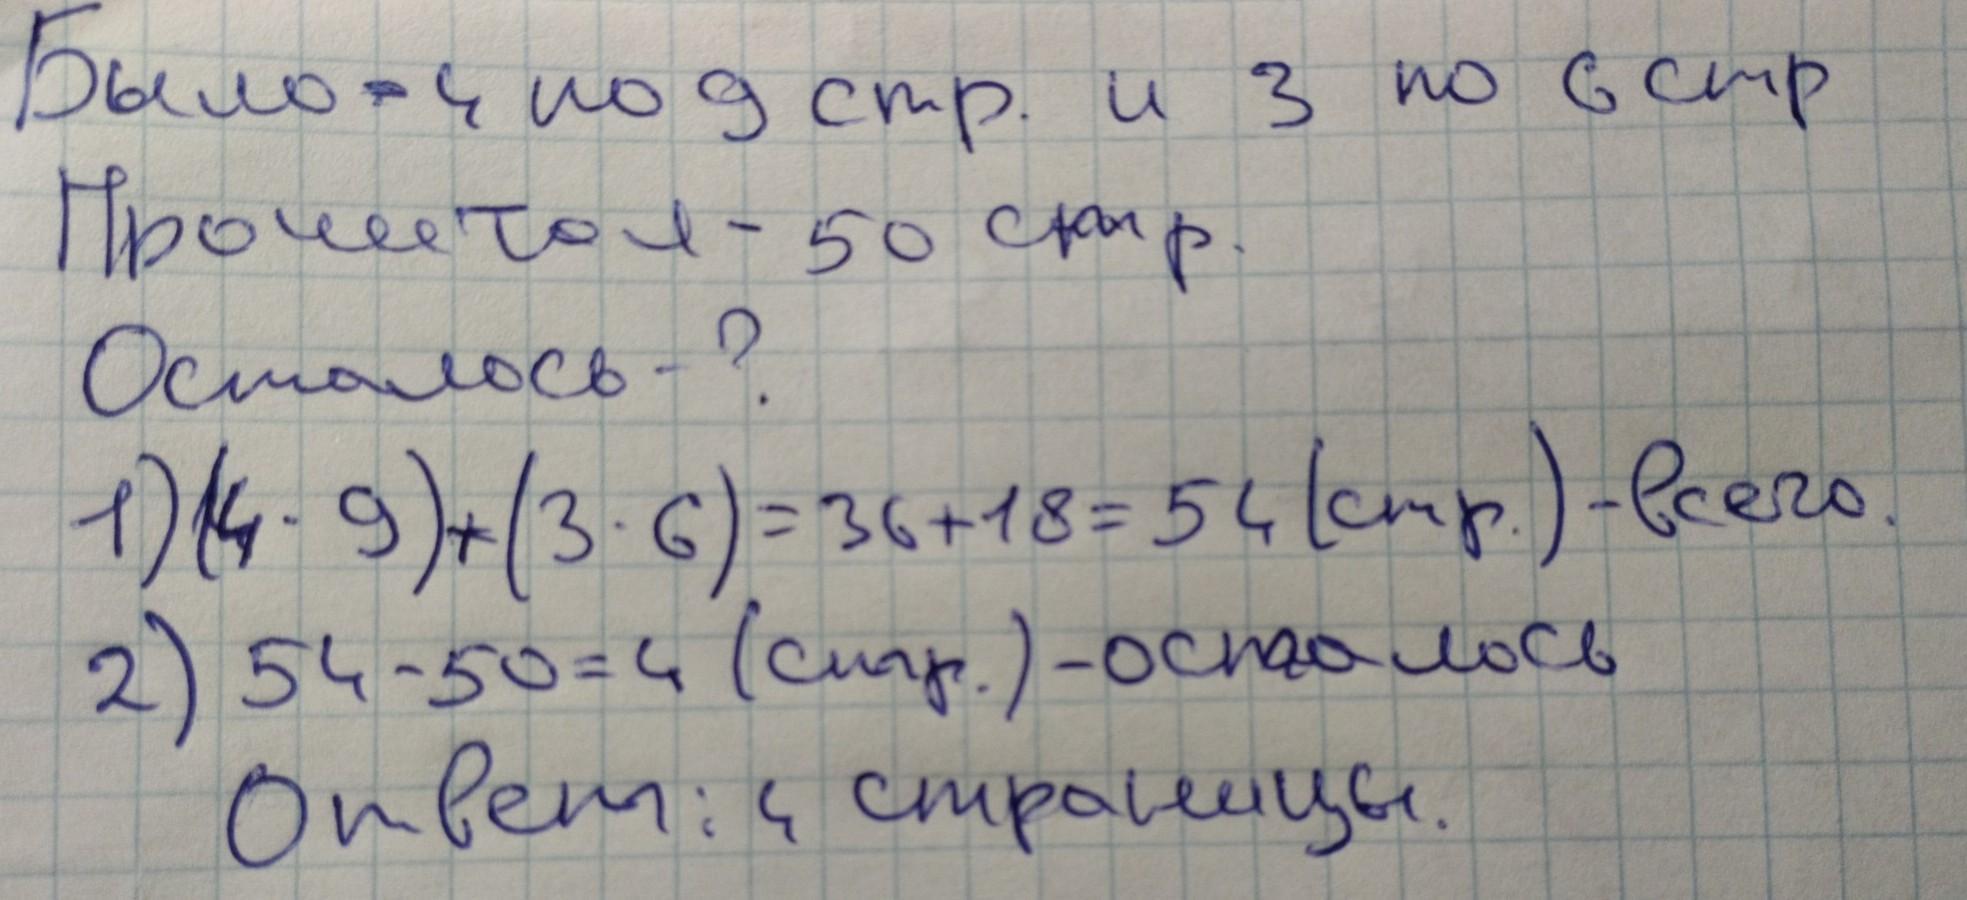 Было - 4 по 9 стр. и 3 по 6 стр
Прочитал - 50 стр.
Осталось - ?
1) (4 · 9) + (3 · 6) = 36 + 18 = 54 (стр.) - всего.
2) 54 - 50 = 4 (стр.) - осталось
Ответ: 4 страницы.